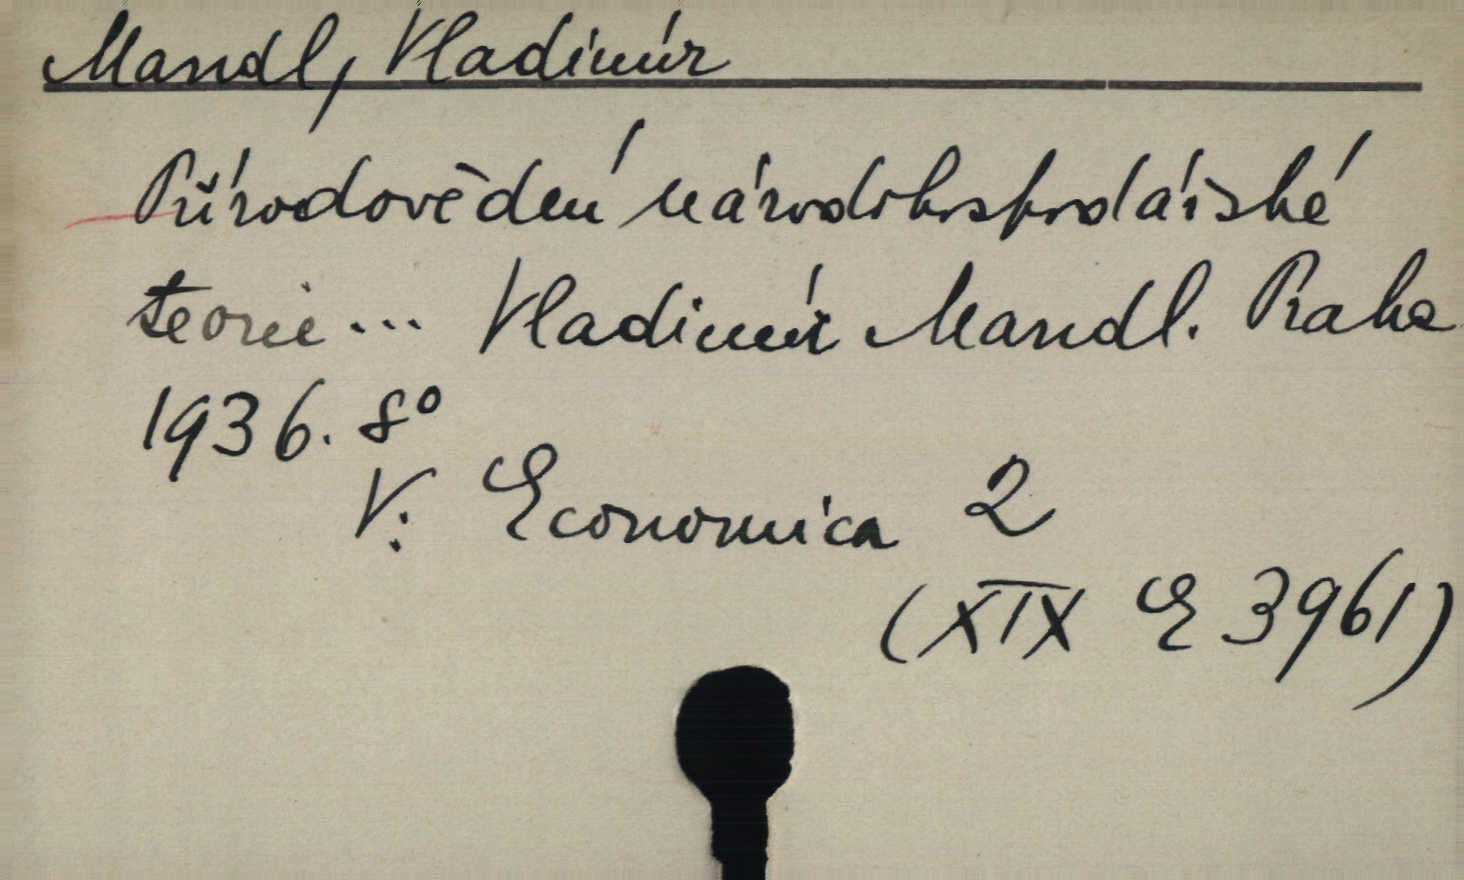 Mandl, Vladimír
Přírodovědní národohospodářské
teorie... Vladimír Mandl. Praha
1936. 8°
V: Economica 2
(XIX E 3961)